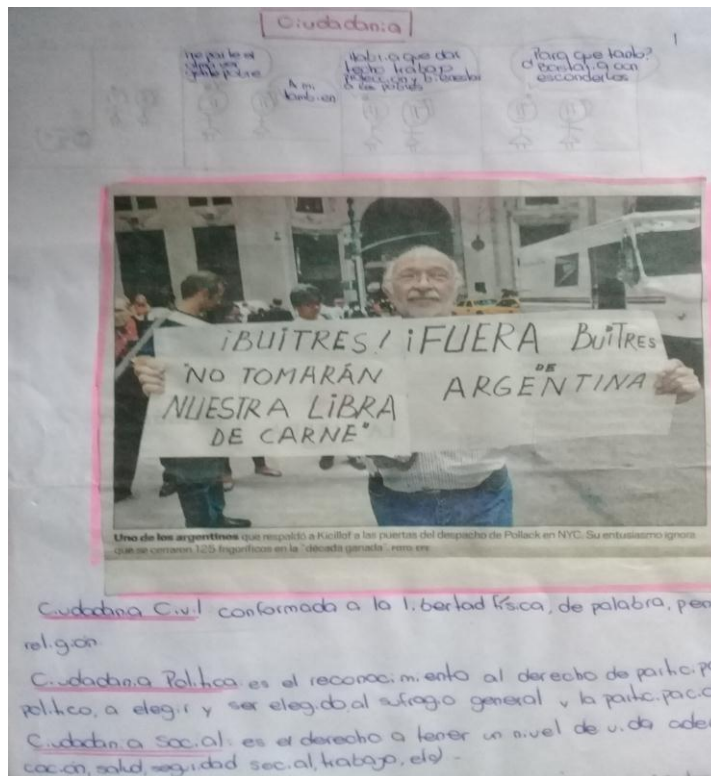 Ciudadania
1
me parte el
alma ver
gente pobre
A mi
tambien
Habria que dar
techo trabajo
protección y bienestar
a los pobres
¿Para que tanto?
Bastaria con
esconderlos
¡BUiTRES! ¡FUERA BUiTRES
"NO TOMARÁN DE ARGENTINA
NUESTRA LiBRA
DE CARNE"
Uno de los argentinos que respaldó a Kicillof a las puertas del despacho de Pollack en NYC. Su entusiasmo ignora
que se cerraron 125 frigoríficos en la "década ganada".
Ciudadana Civil conformada a la libertad física, de palabra, pen
religion
Ciudadania Politica: es el reconocimiento al derecho de particip
politico, a elegir y ser elegido, al sufragio general y la participacio
Ciudadania Social: es el derecho a tener un nivel de vida ade
cación, salud, seguridad social, trabajo,